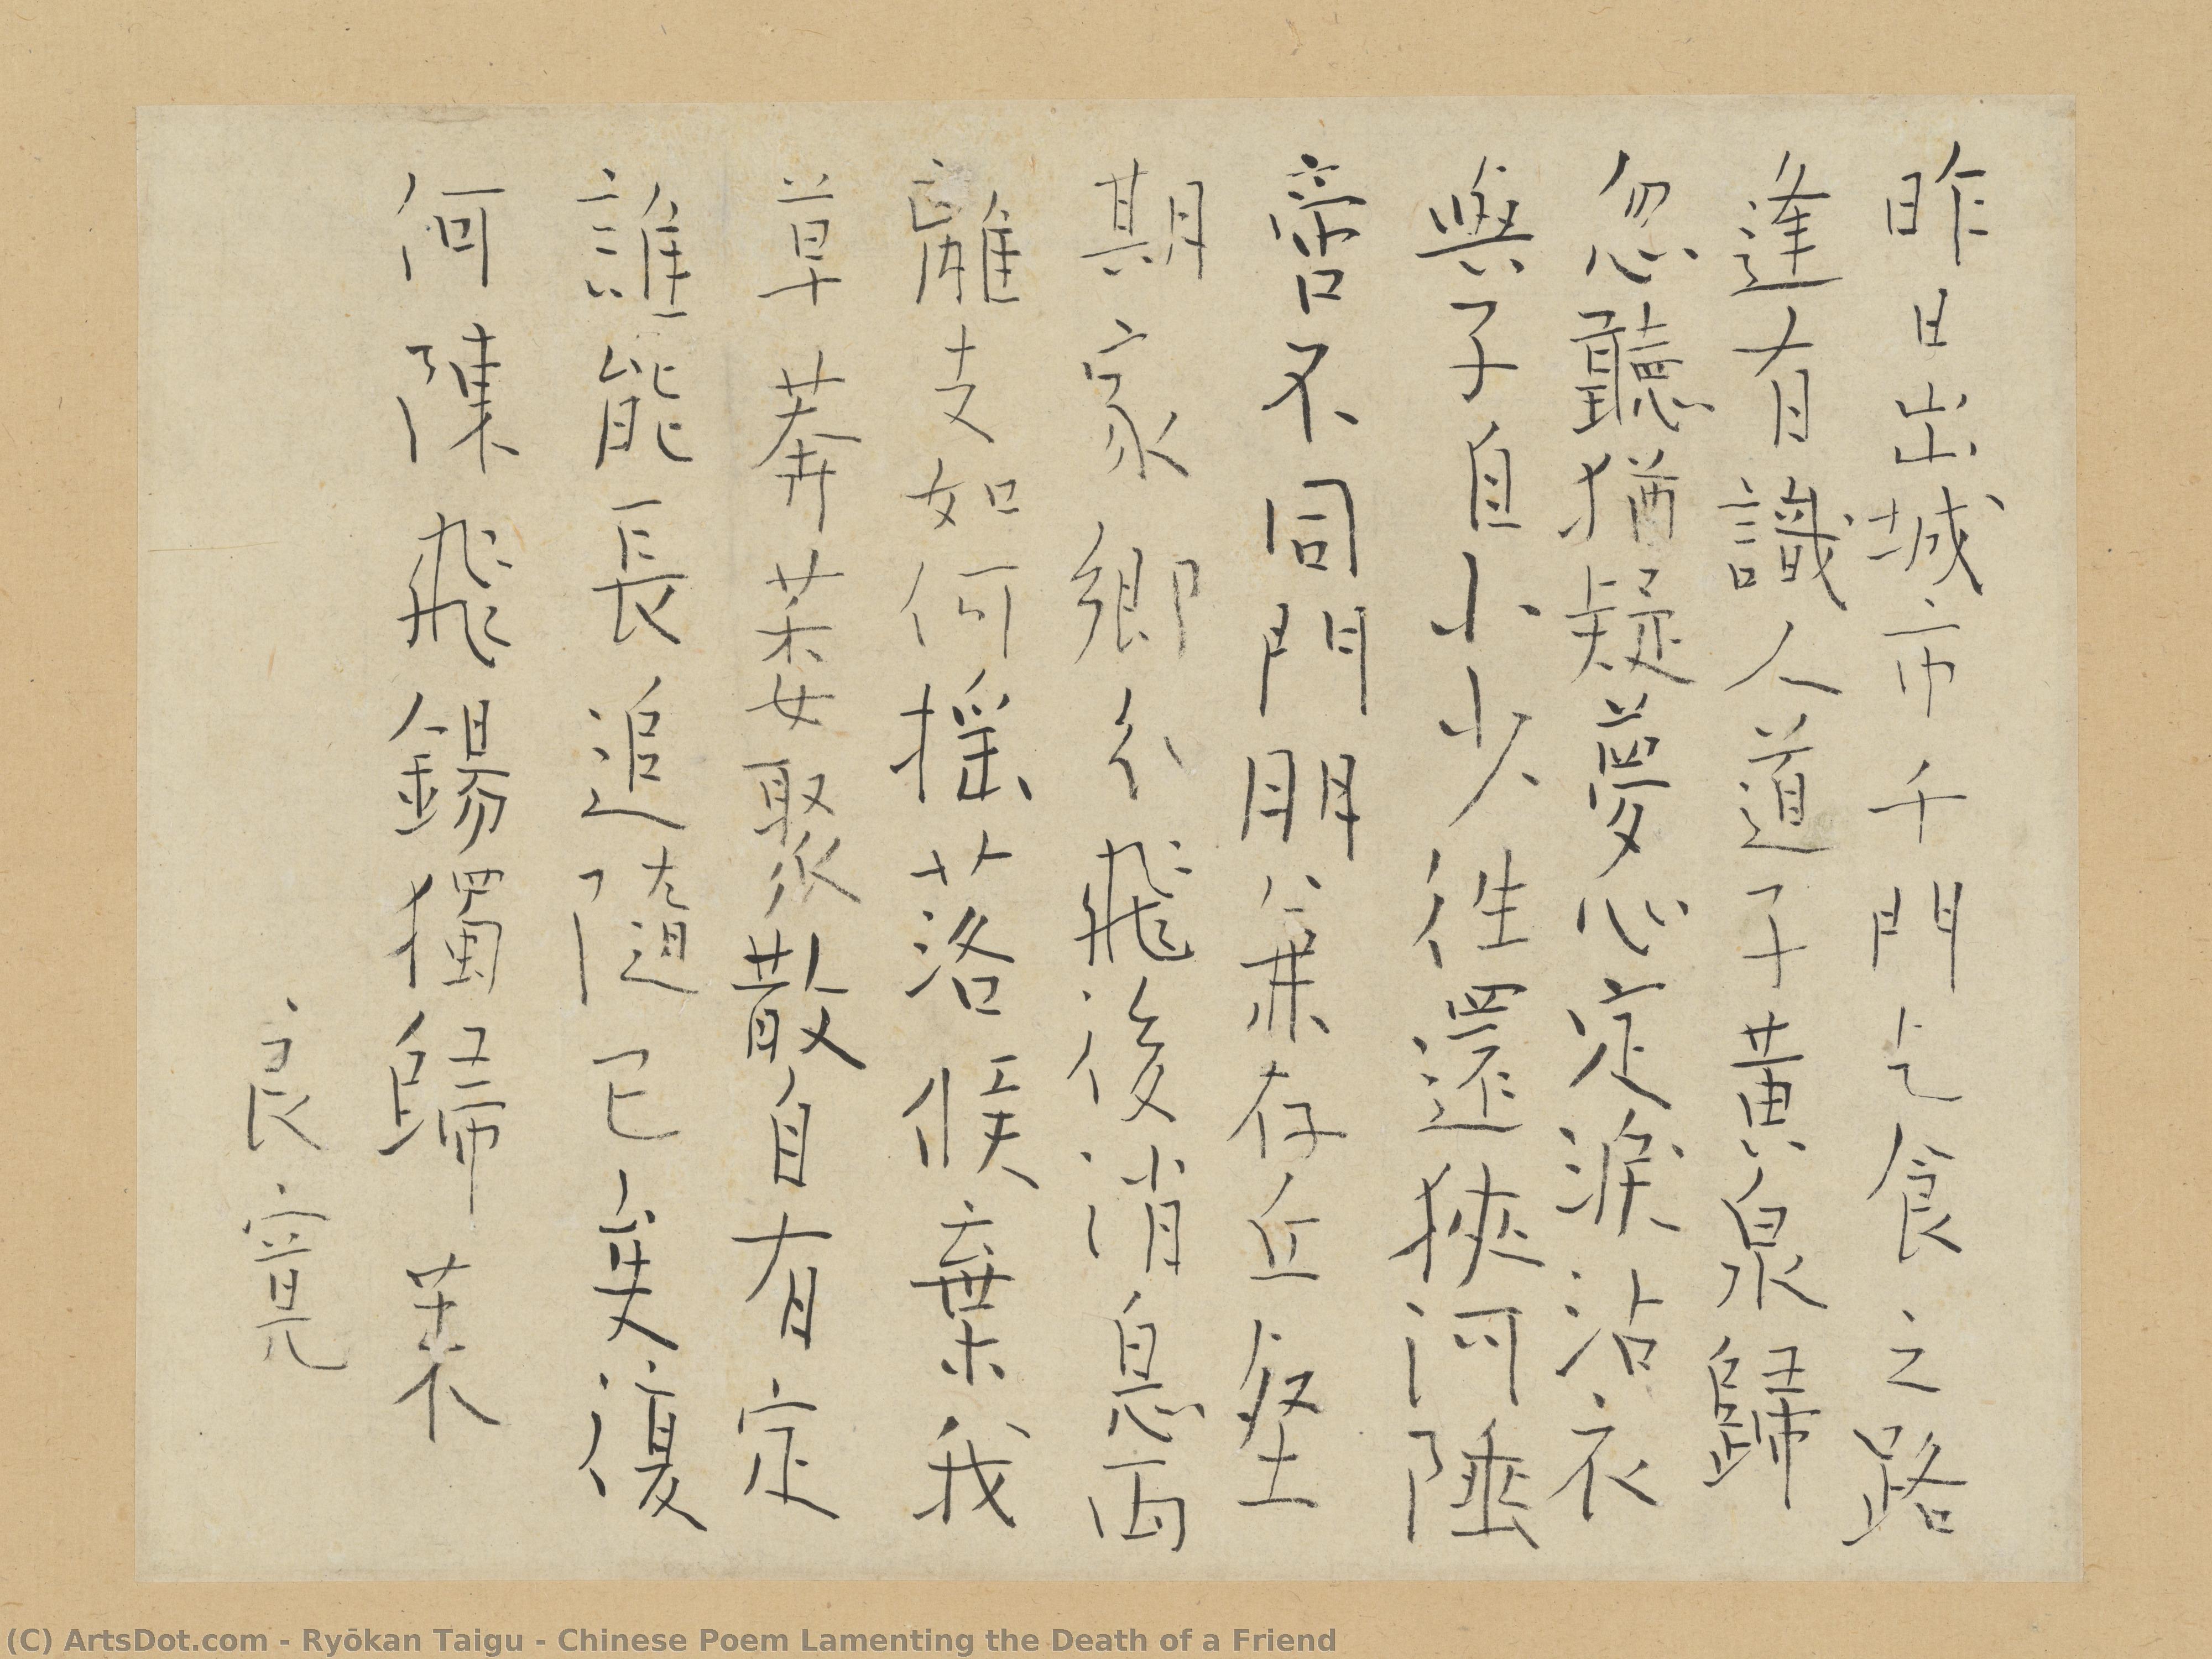 昨日出城市千門乞食之路
逢有識人道子黄泉歸
忽聽猶疑夢心定淚沾衣
與子自小少往還狹河陲
啻不同門朋兼存丘壑
期家鄉分飛後消息両
離支如何搖落候棄我
草莽萎聚散自有定
誰能長追隨已矣復
何陳飛錫獨歸来
良寛
(C) ArtsDot.com - Ryōkan Taigu - Chinese Poem Lamenting the Death of a Friend